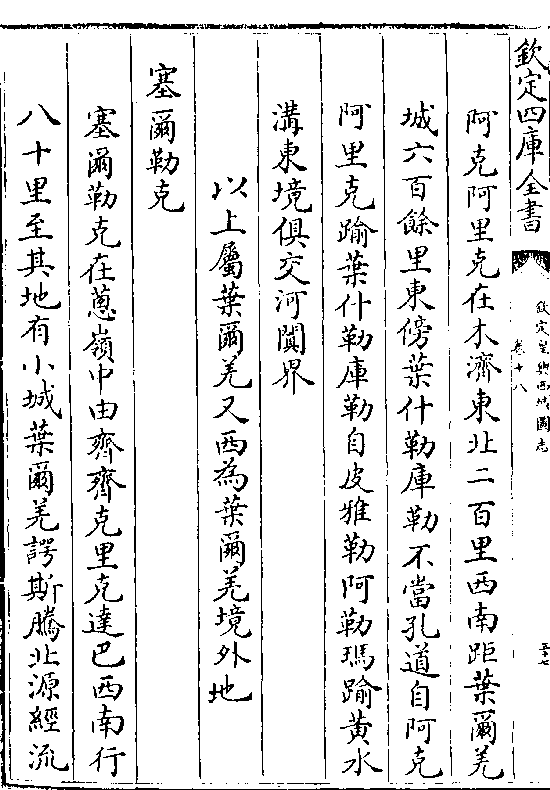 欽定四庫全書
欽定皇輿西域圖志
卷十八
阿克阿里克在木濟東北二百里西南距葉爾羌
城六百餘里東傍葉什勒庫勒不當孔道自阿克
阿里克踰葉什勒庫勒自皮雅勒阿勒瑪踰黄水
溝東境俱交河闐界
以上屬葉爾羌又西為葉爾羌境外地
塞爾勒克
塞爾勒克在蔥嶺中由齊齊克里克達巴西南行
八十里至其地有小城葉爾羌諤斯騰北源經流